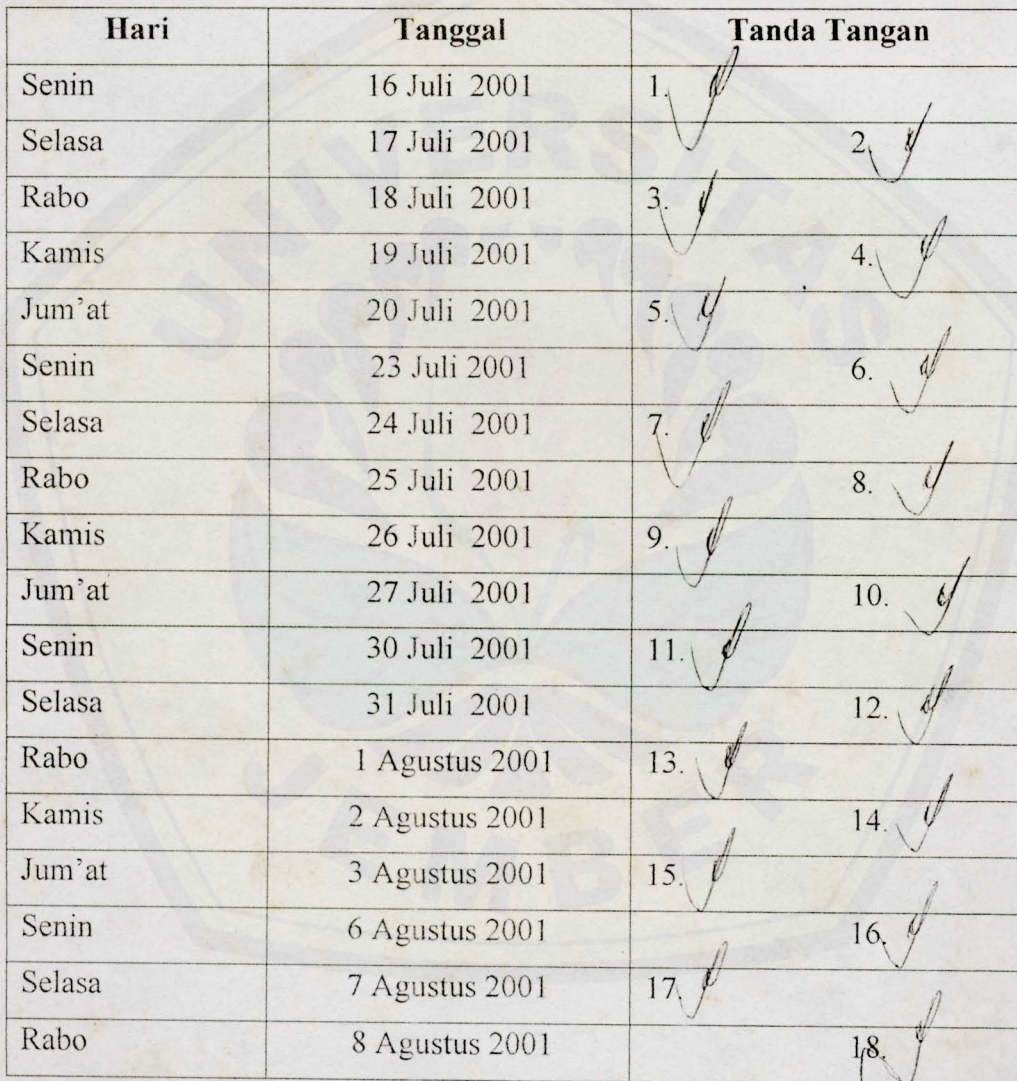 Hari Tanggal Tanda Tangan
Senin 16 Juli 2001 1.
Selasa 17 Juli 2001 2.
Rabo 18 Juli 2001 3.
Kamis 19 Juli 2001 4.
Jum'at 20 Juli 2001 5.
Senin 23 Juli 2001 6.
Selasa 24 Juli 2001 7.
Rabo 25 Juli 2001 8.
Kamis 26 Juli 2001 9.
Jum'at 27 Juli 2001 10.
Senin 30 Juli 2001 11.
Selasa 31 Juli 2001 12.
Rabo 1 Agustus 2001 13.
Kamis 2 Agustus 2001 14.
Jum'at 3 Agustus 2001 15.
Senin 6 Agustus 2001 16.
Selasa 7 Agustus 2001 17.
Rabo 8 Agustus 2001 18.
UNIVERSITAS
JEMBER